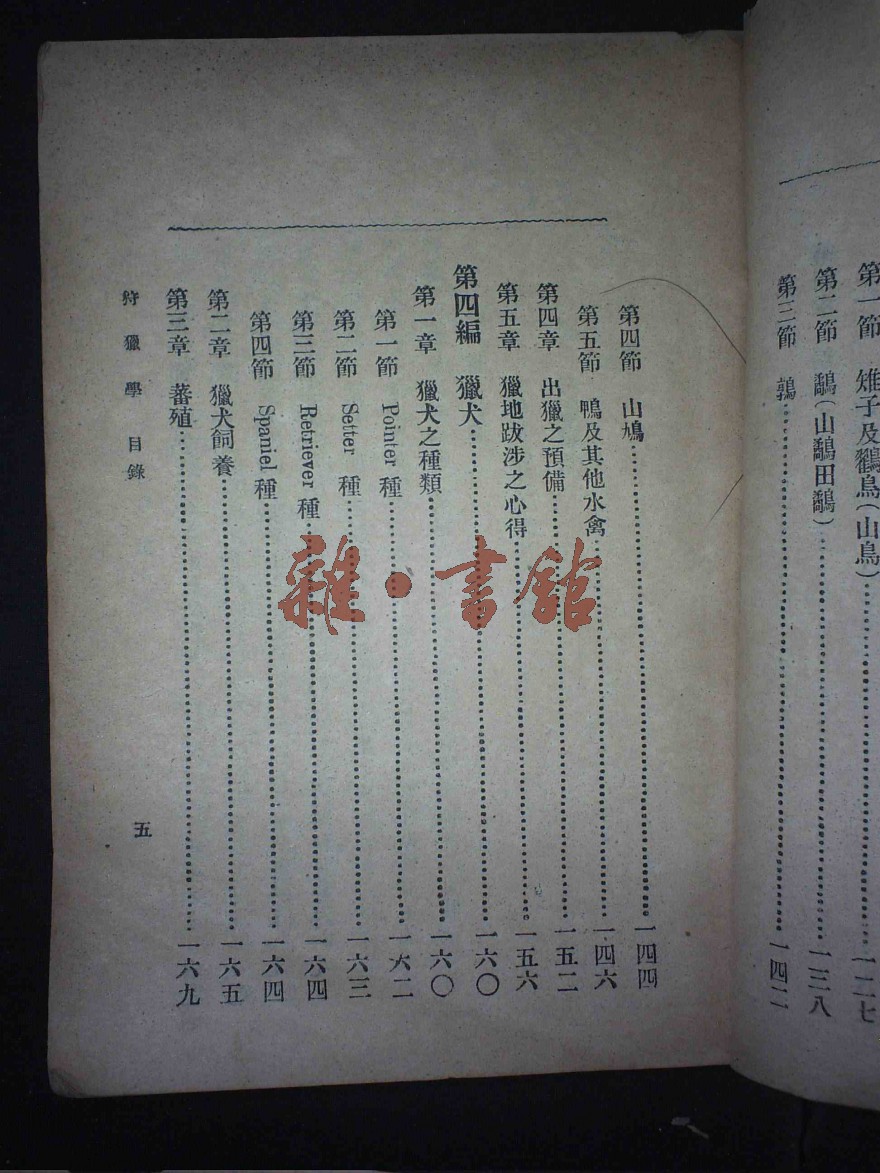 第一節 雉子及鸐鳥(山鳥)……一二七
第二節 鷸(山鷸田鷸)……一三八
第三節 鶉……一四二
第四節 山鳩……一四四
第五節 鴨及其他水禽……一四六
第四章 出獵之預備……一五二
第五章 獵地跋涉之心得……一五六
第四編 獵犬……一六〇
第一章 獵犬之種類……一六〇
第一節 Pointer 種……一六二
第二節 Setter 種……一六三
第三節 Retriever 種……一六四
第四節 Spaniel 種……一六四
第二章 獵犬飼養……一六五
第三章 蕃殖……一六九
狩獵學 目錄
五
雜·書館